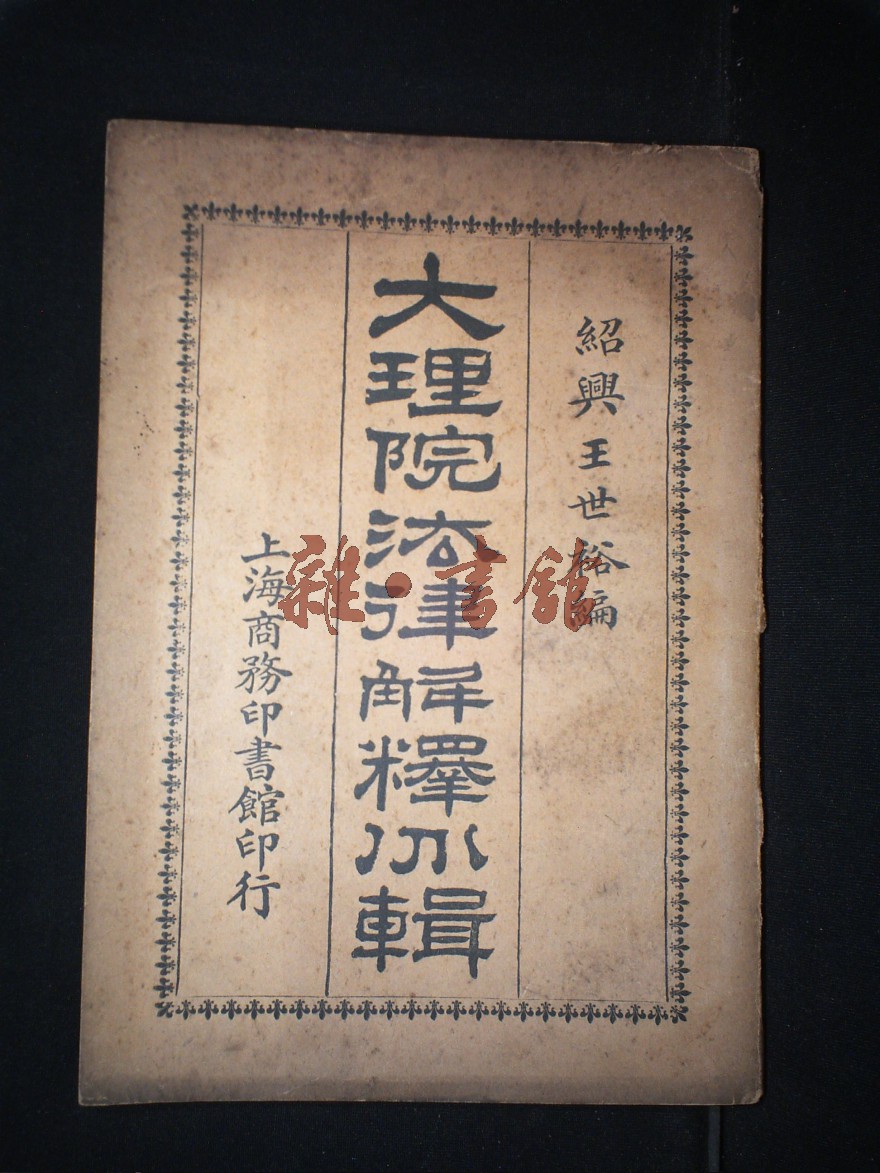 紹興王世裕編
大理院法律解釋分輯
上海商務印書館印行
雜·書館